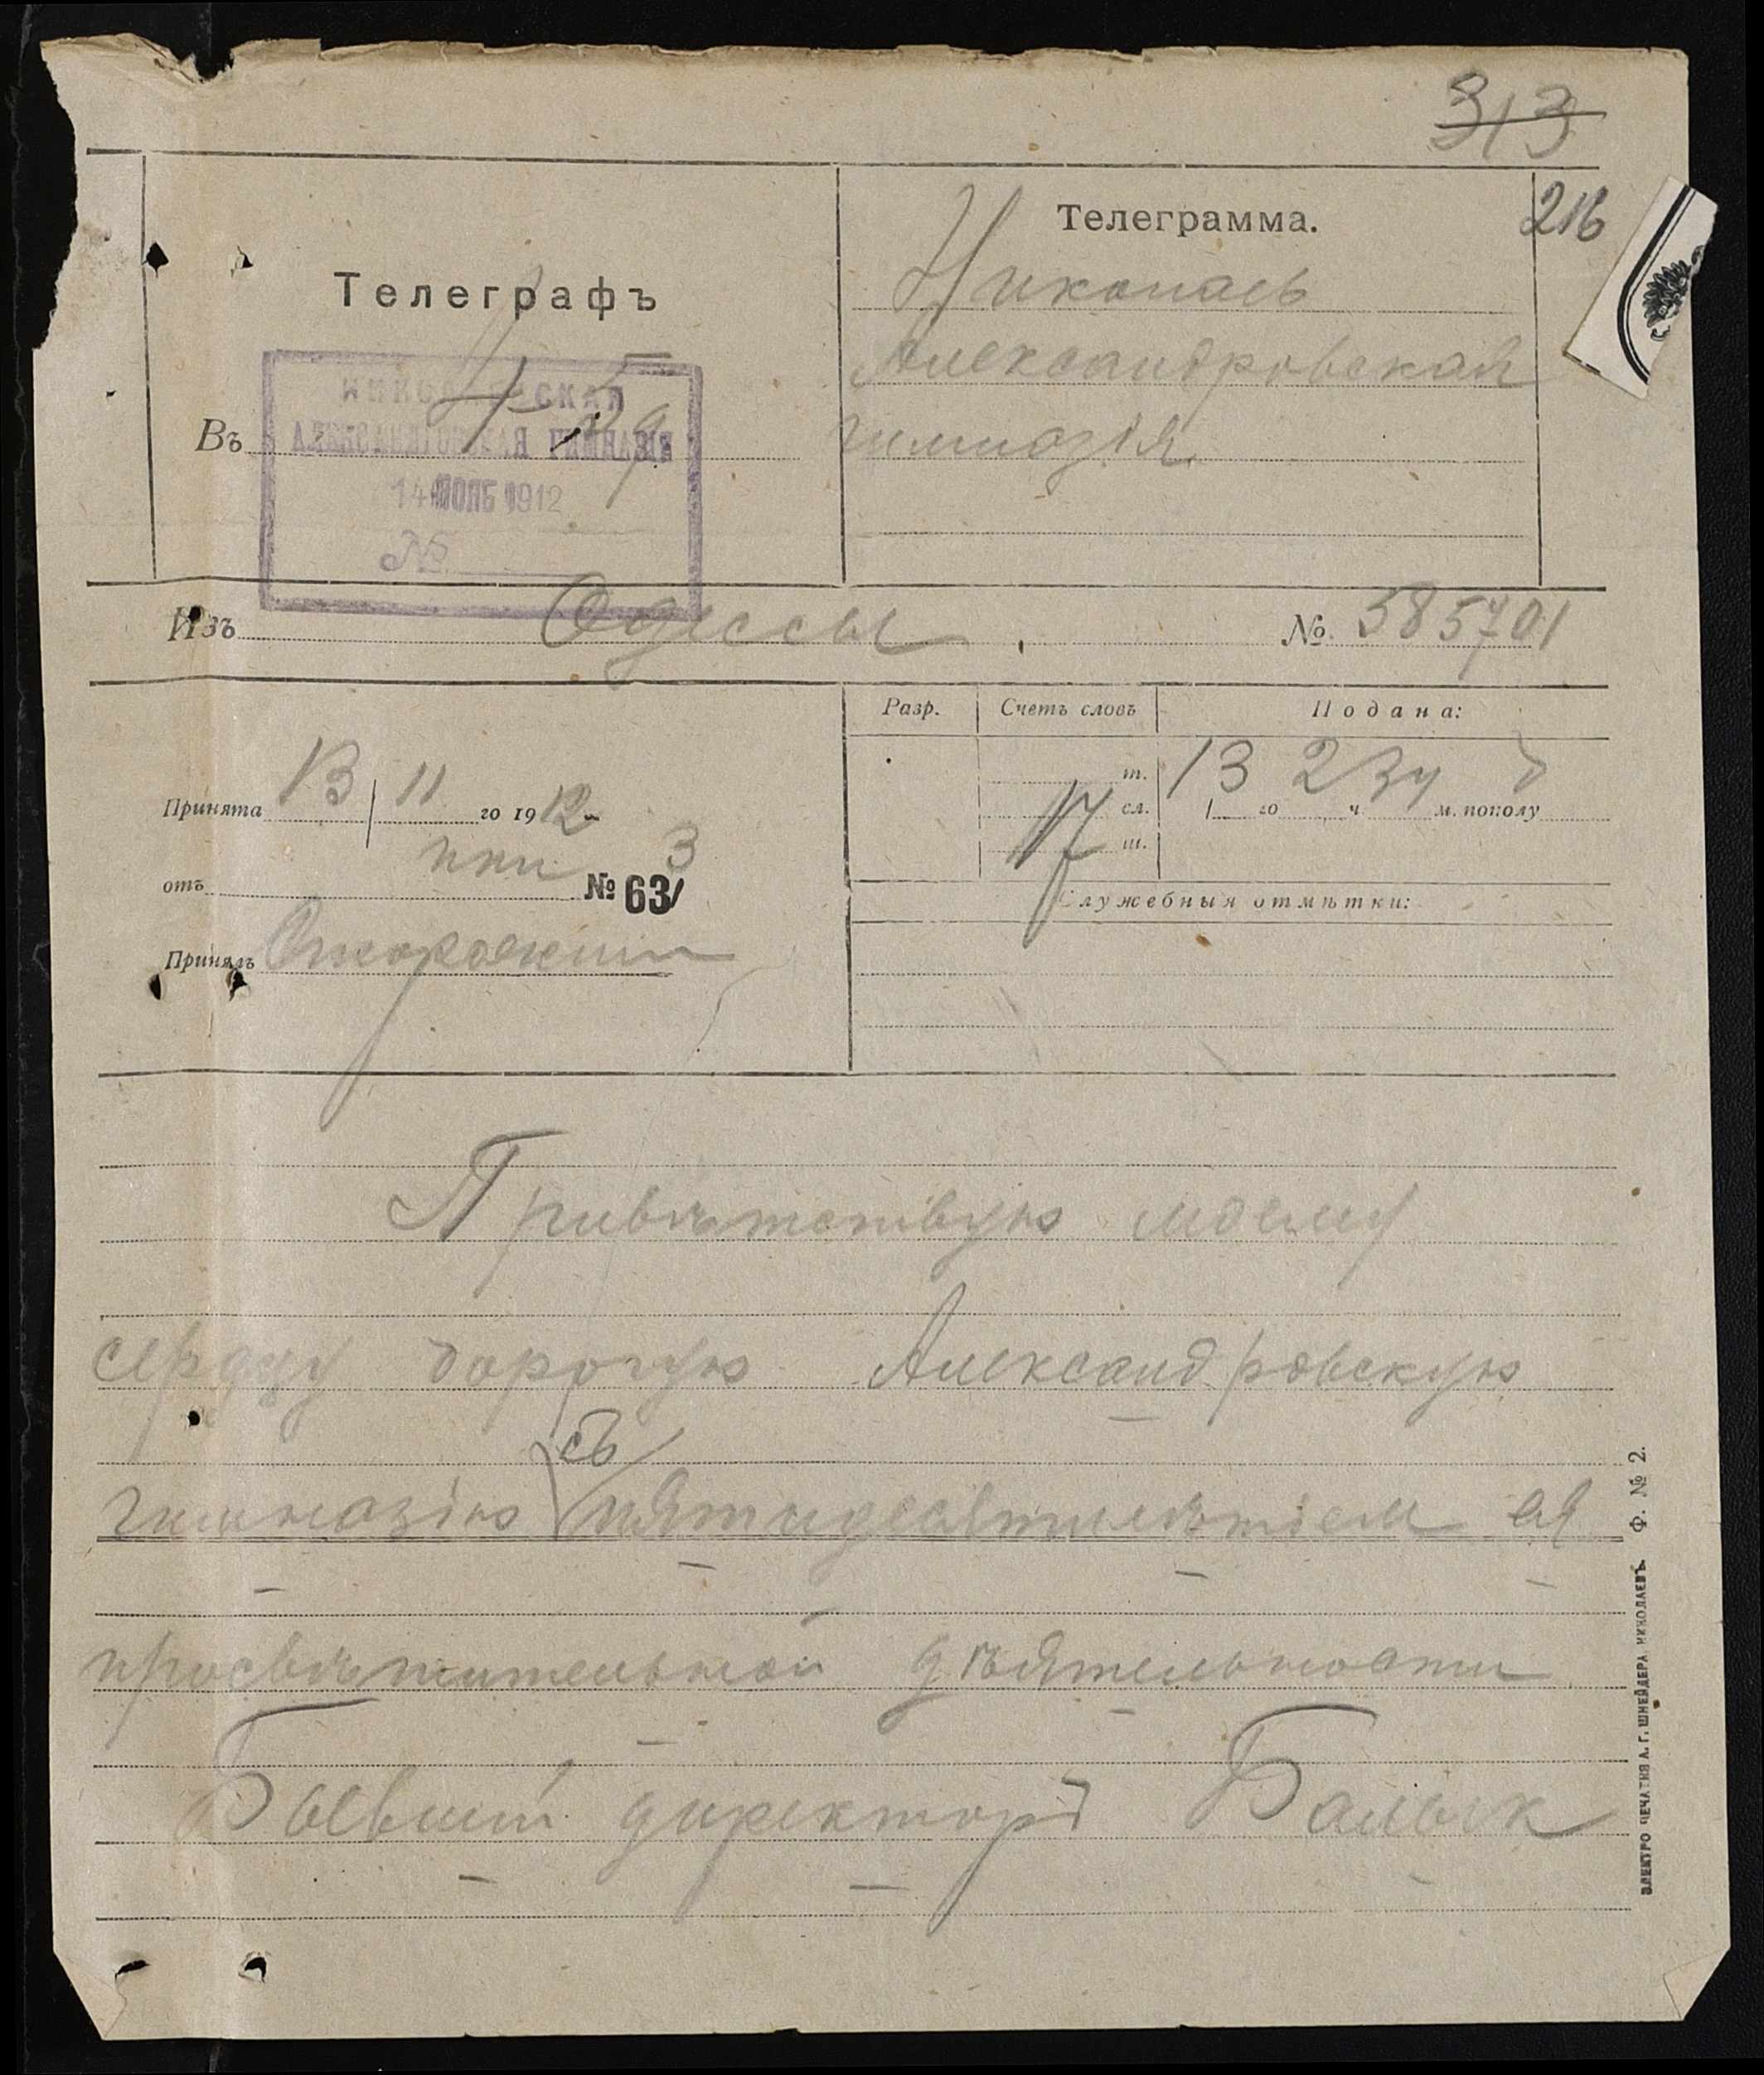 313
216
Телеграмма.
Николаев
Александровская
гимназія
Телеграфъ
Въ
НИКОЛАЕВСКАЯ
АЛЕКСАНДРОВСКАЯ ГИМНАЗІЯ
14 НОЯБ 1912
№
Изъ Одессы № 585701
Разр. Счетъ словъ Подана:
Принята 13/11 го 1912
т.
17 сл.
ш.
13 го 2 ч 34 м. пополу д
отъ нки № 63/3
Служебныя отмѣтки:
Принялъ
Привѣтствую моему
сердцу дорогую Александровскую
съ
гимназію пятидесятилѣтіем ея
просвѣтительной дѣятельности
Бывший директоръ Балык
ЭЛЕКТРО ПЕЧАТНЯ А. Г. ШНЕЙДЕРА НИКОЛАЕВЪ. Ф. № 2.